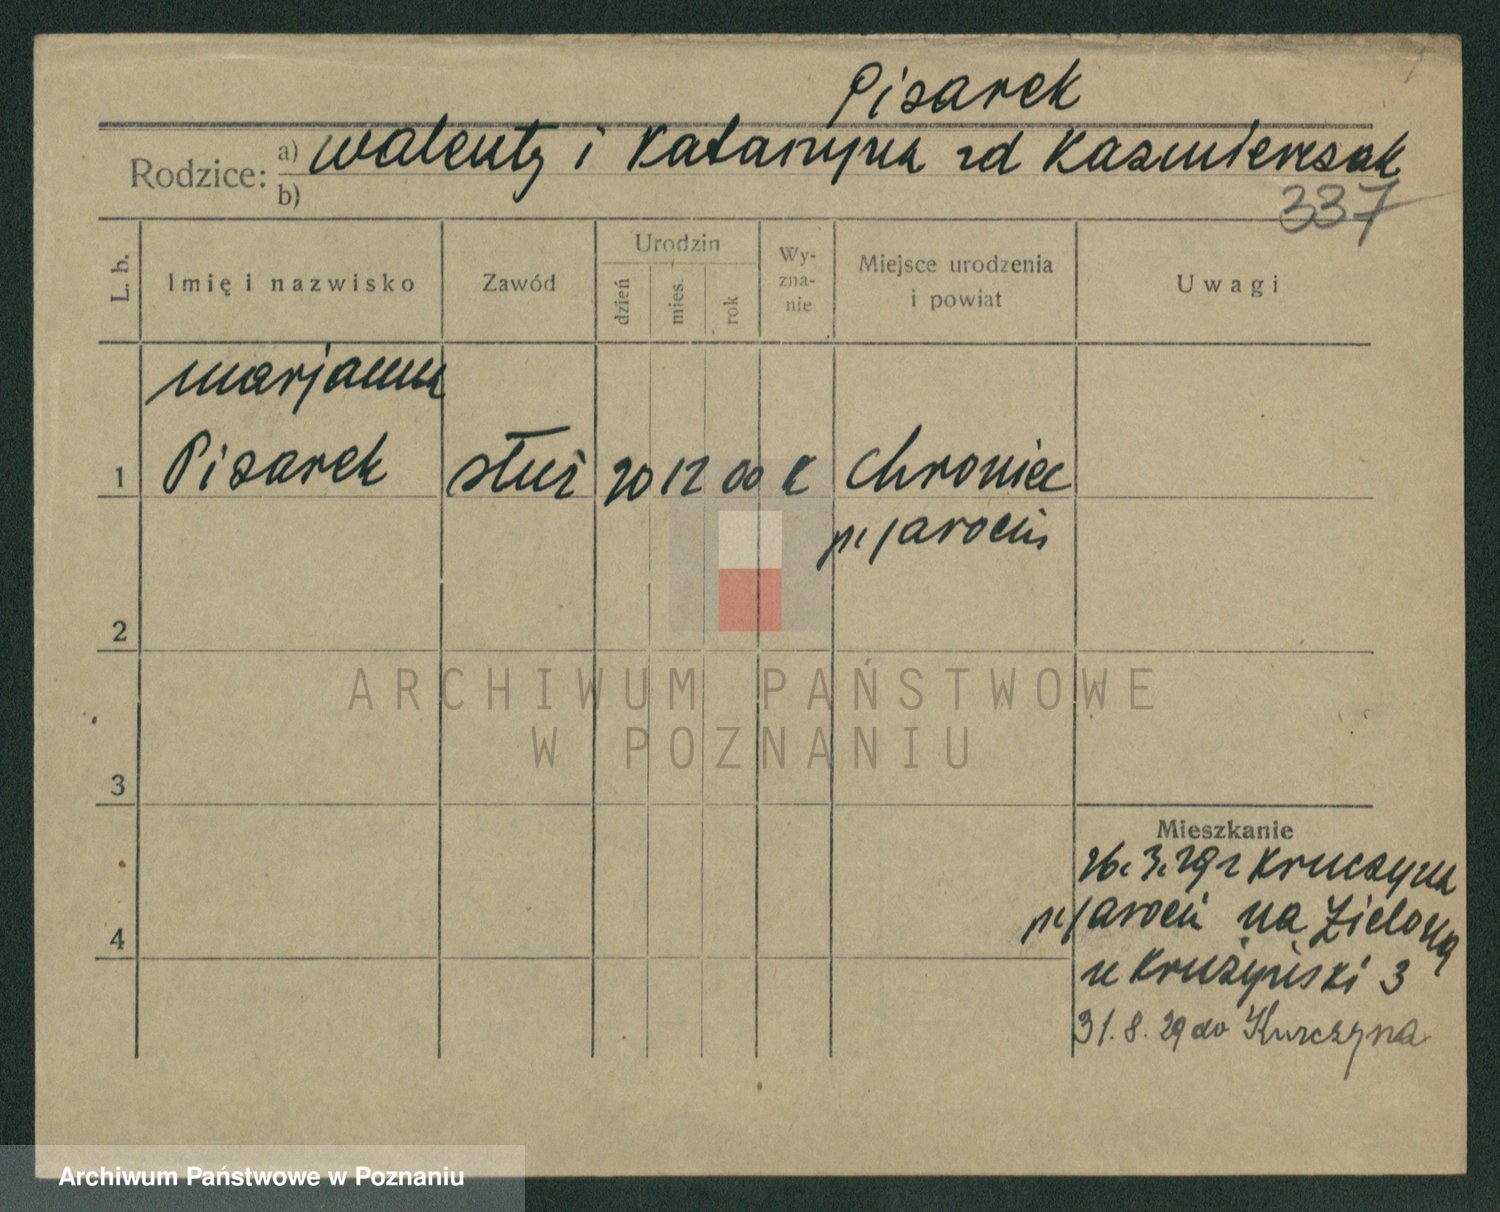 Pisarek
Rodzice: a) Walenty i Katarzyna zd Kazmierczak
b)
337
L. b.
Imię i nazwisko
Zawód
Urodzin
dzień
mies.
rok
Wy-
zna-
nie
Miejsce urodzenia
i powiat
Uwagi
Marjanna
1 Pisarek służ 20 12 00 K Chroniec
p. Jarocin
2
ARCHIWUM PAŃSTWOWE
W POZNANIU
3
Mieszkanie
26. 3. 29 z Kruczyna
p. Jarocin na Zieloną
u Krużyński 3
4
31. 8. 29 do Kurczyna
Archiwum Państwowe w Poznaniu